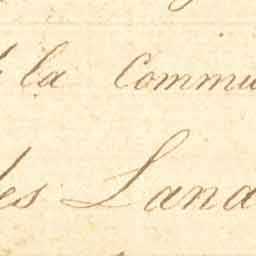 la Commu
les Land